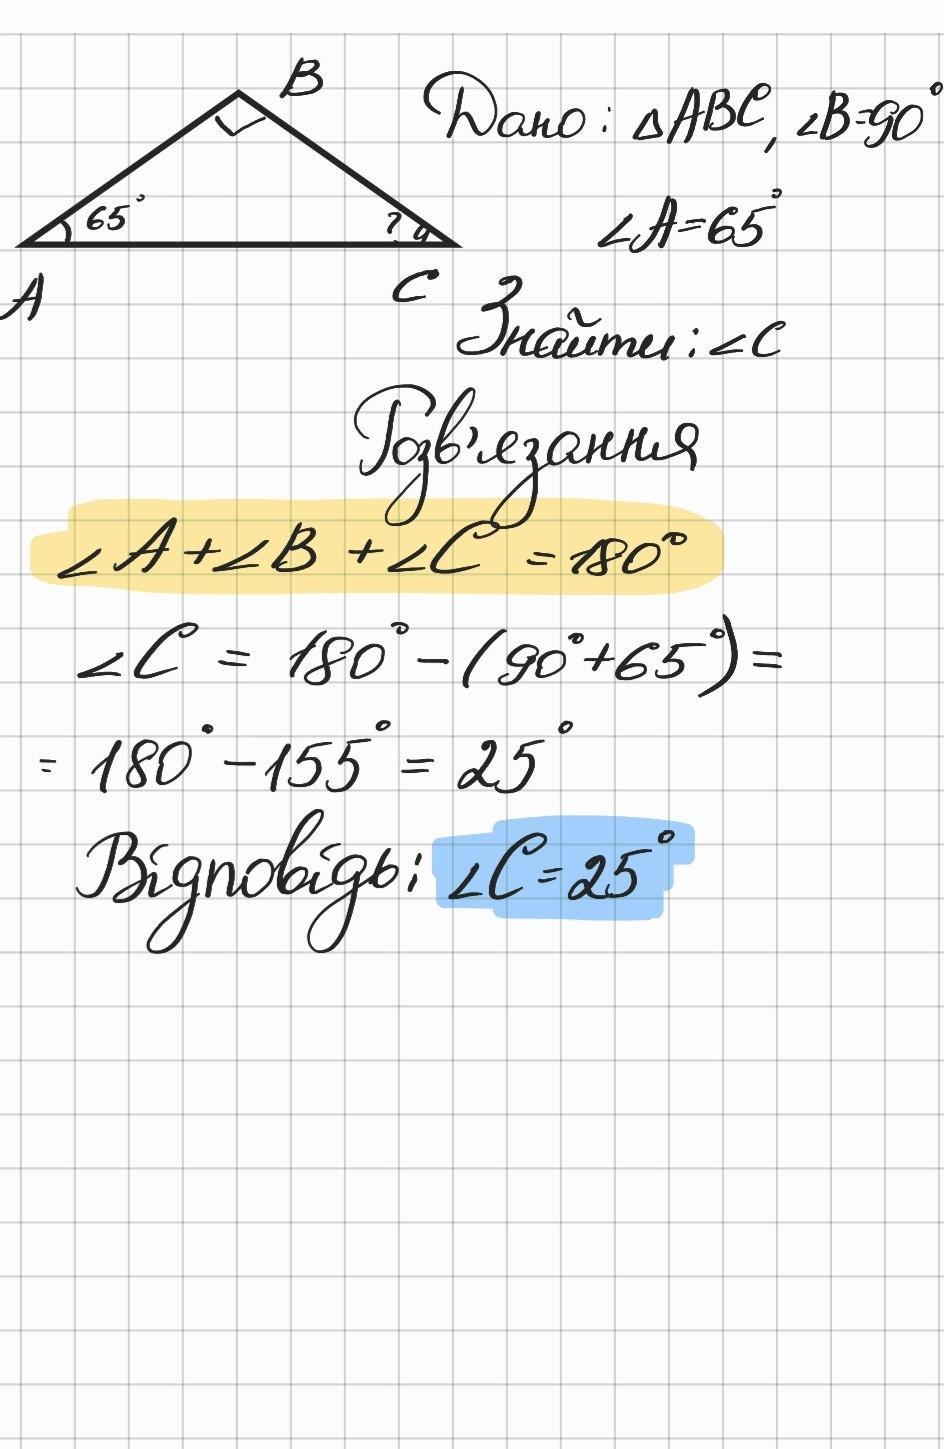 B
Дано: △ABC, ∠B=90°
65°
?
∠A=65°
A
C
Знайти: ∠C
Розв'язання
∠A+∠B+∠C=180°
∠C = 180° - (90°+65°) =
= 180° - 155° = 25°
Відповідь: ∠C=25°